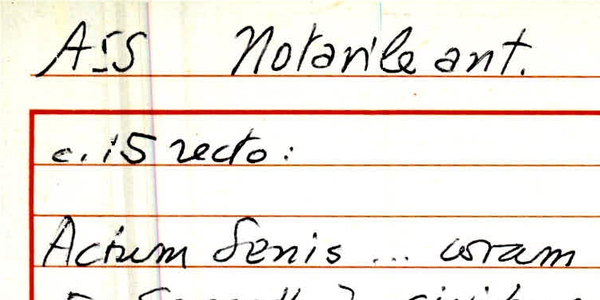 ASS Notarile ant.
c. 15 recto:
Actum Senis ... coram